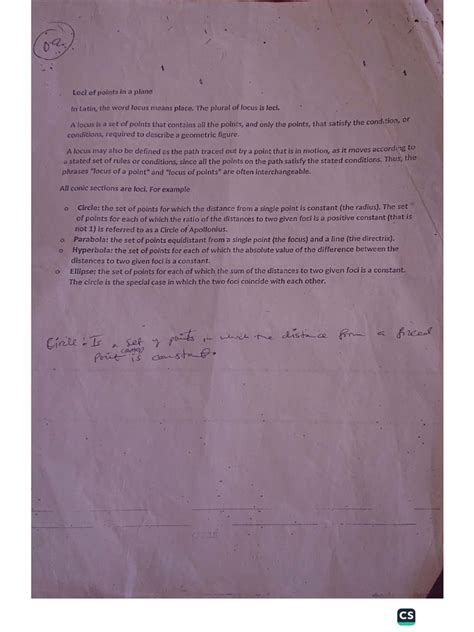 02.
Loci of points in a plane
In Latin, the word locus means place. The plural of locus is loci.
A locus is a set of points that contains all the points, and only the points, that satisfy the condition, or
conditions, required to describe a geometric figure.
A locus may also be defined as the path traced out by a point that is in motion, as it moves according to
a stated set of rules or conditions, since all the points on the path satisfy the stated conditions. Thus, the
phrases "locus of a point" and "locus of points" are often interchangeable.
All conic sections are loci. For example
o Circle: the set of points for which the distance from a single point is constant (the radius). The set
of points for each of which the ratio of the distances to two given foci is a positive constant (that is
not 1) is referred to as a Circle of Apollonius.
o Parabola: the set of points equidistant from a single point (the focus) and a line (the directrix).
o Hyperbola: the set of points for each of which the absolute value of the difference between the
distances to two given foci is a constant.
o Ellipse: the set of points for each of which the sum of the distances to two given foci is a constant.
The circle is the special case in which the two foci coincide with each other.
Circle: Is a set of points in which the distance form a fixed
point is constant.
CS